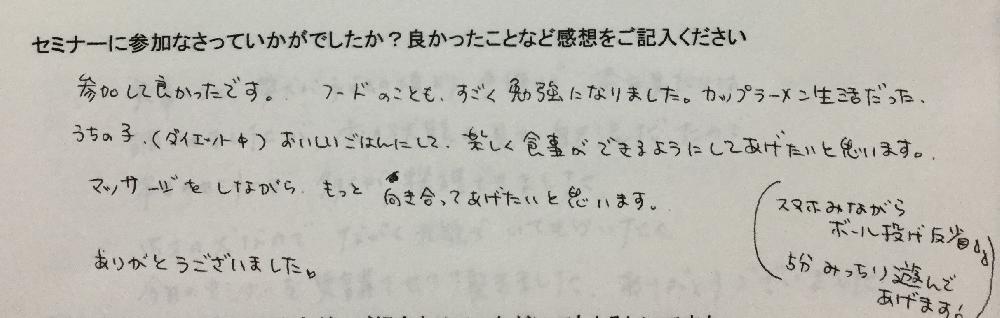 セミナーに参加なさっていかがでしたか？良かったことなど感想をご記入ください
参加して良かったです。フードのことも、すごく勉強になりました。カップラーメン生活だった、
うちの子、(ダイエット中) おいしいごはんにして、楽しく食事ができるようにしてあげたいと思います。
マッサージをしながら、もっと向き合ってあげたいと思います。
ありがとうございました。
(スマホみながら
ボール投げ反省
5分みっちり遊んで
あげます!